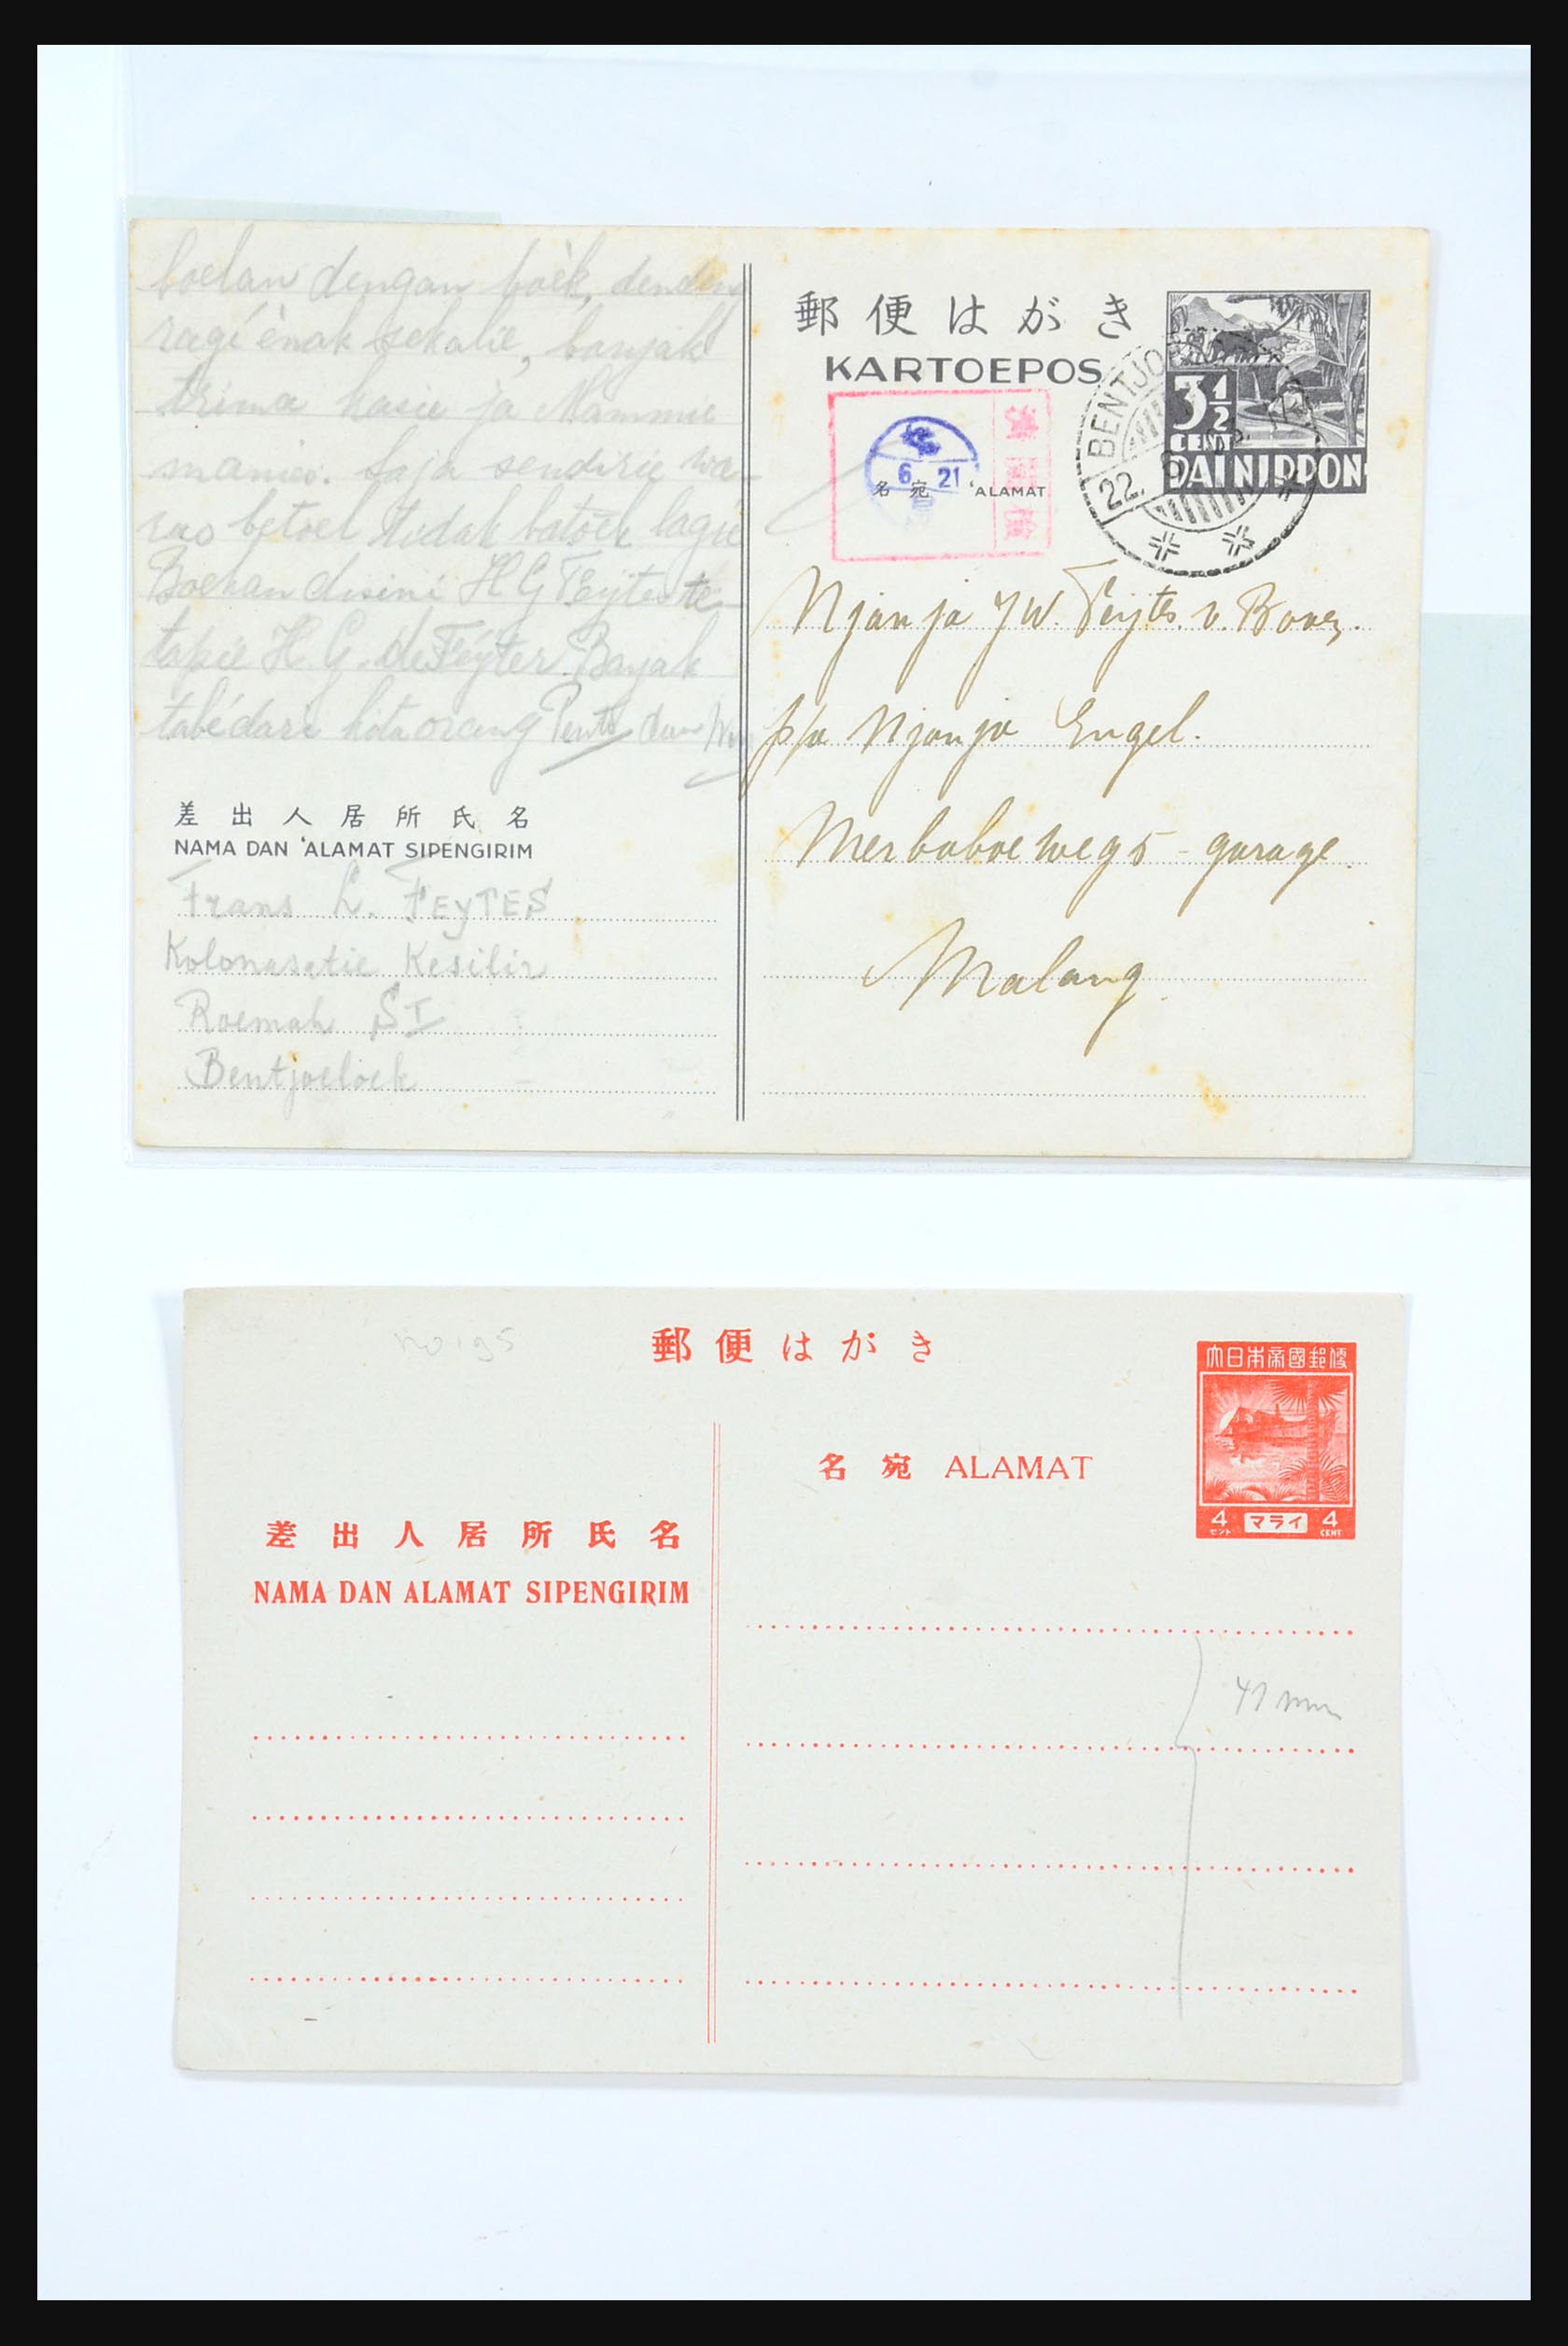 boelan dengan boèk, denden
ragi ènak sekalie, banjak
trima kasie ja Mammie
manies. saja sendirie wa-
ras betoel tidak batoek lagie
Boekan disini H G Feytes te-
tapie H. G. de Feyter. Banjak
tabé dari kita orang Pents dan
差出人居所氏名
NAMA DAN 'ALAMAT SIPENGIRIM
Frans L. FEYTES
Kolonasatie Kesilir
Roemah SI
Bentjoeloek
郵便はがき
KARTOEPOS
3½
CENT
DAI NIPPON
BENTJO
22.
6 21
検閲済
名宛 'ALAMAT
Njonja J W. Feytes. v. Boven.
p/a Njonja Engel.
Merbaboeweg 5 - garage.
Malang.
no 195
郵便はがき
大日本帝國郵便
4 セント マライ 4 CENT
名宛 ALAMAT
差出人居所氏名
NAMA DAN ALAMAT SIPENGIRIM
41 mm